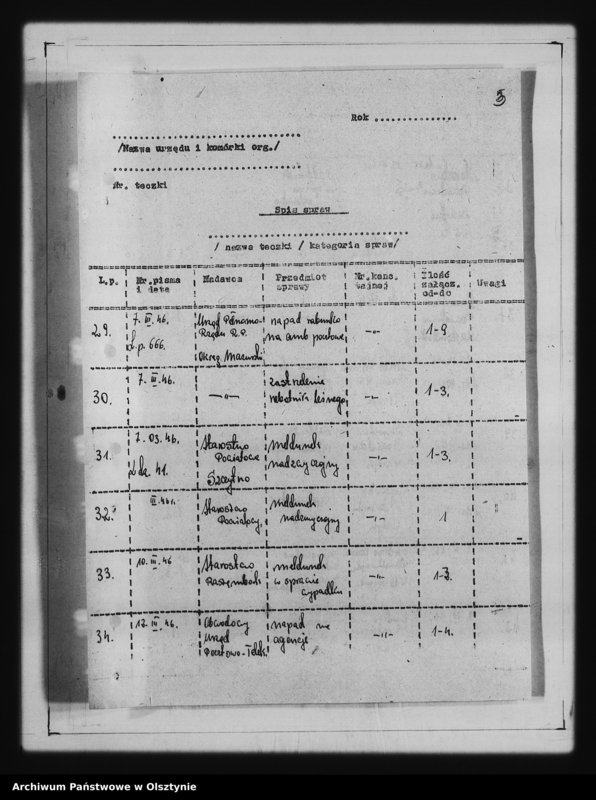 3
Rok ................
................................
/Nazwa urzędu i komórki org./
................................
Nr. teczki
Spis spraw
..................................
/ nazwa teczki / kategoria spraw/
L.p. Nr.pisma i data Nadawca Przedmiot sprawy Nr.kanc. tajnej Ilość załącz. od-do Uwagi
29. 7. III. 46. L.p. 666. Urząd Pełnomoc. Rządu R.P. Okręg Mazurski napad rabunko na amb pocztowe -"- 1-9
30. 7. III. 46. -"- zastrzelenie robotnika leśnego -"- 1-3.
31. 7. 03. 46. L.dz. 41. Starostwo Powiatowe Szczytno meldunek nadzwyczajny -"- 1-3.
32. III. 46r. Starostwo Powiatowy meldunek nadzwyczajny -"- 1
33. 10. III. 46 Starostwo meldunek w sprawie wypadku -"- 1-3.
34. 12. III. 46. Obwodowy Urząd Pocztowo-Telek. napad na agencję -"- 1-4.
Archiwum Państwowe w Olsztynie